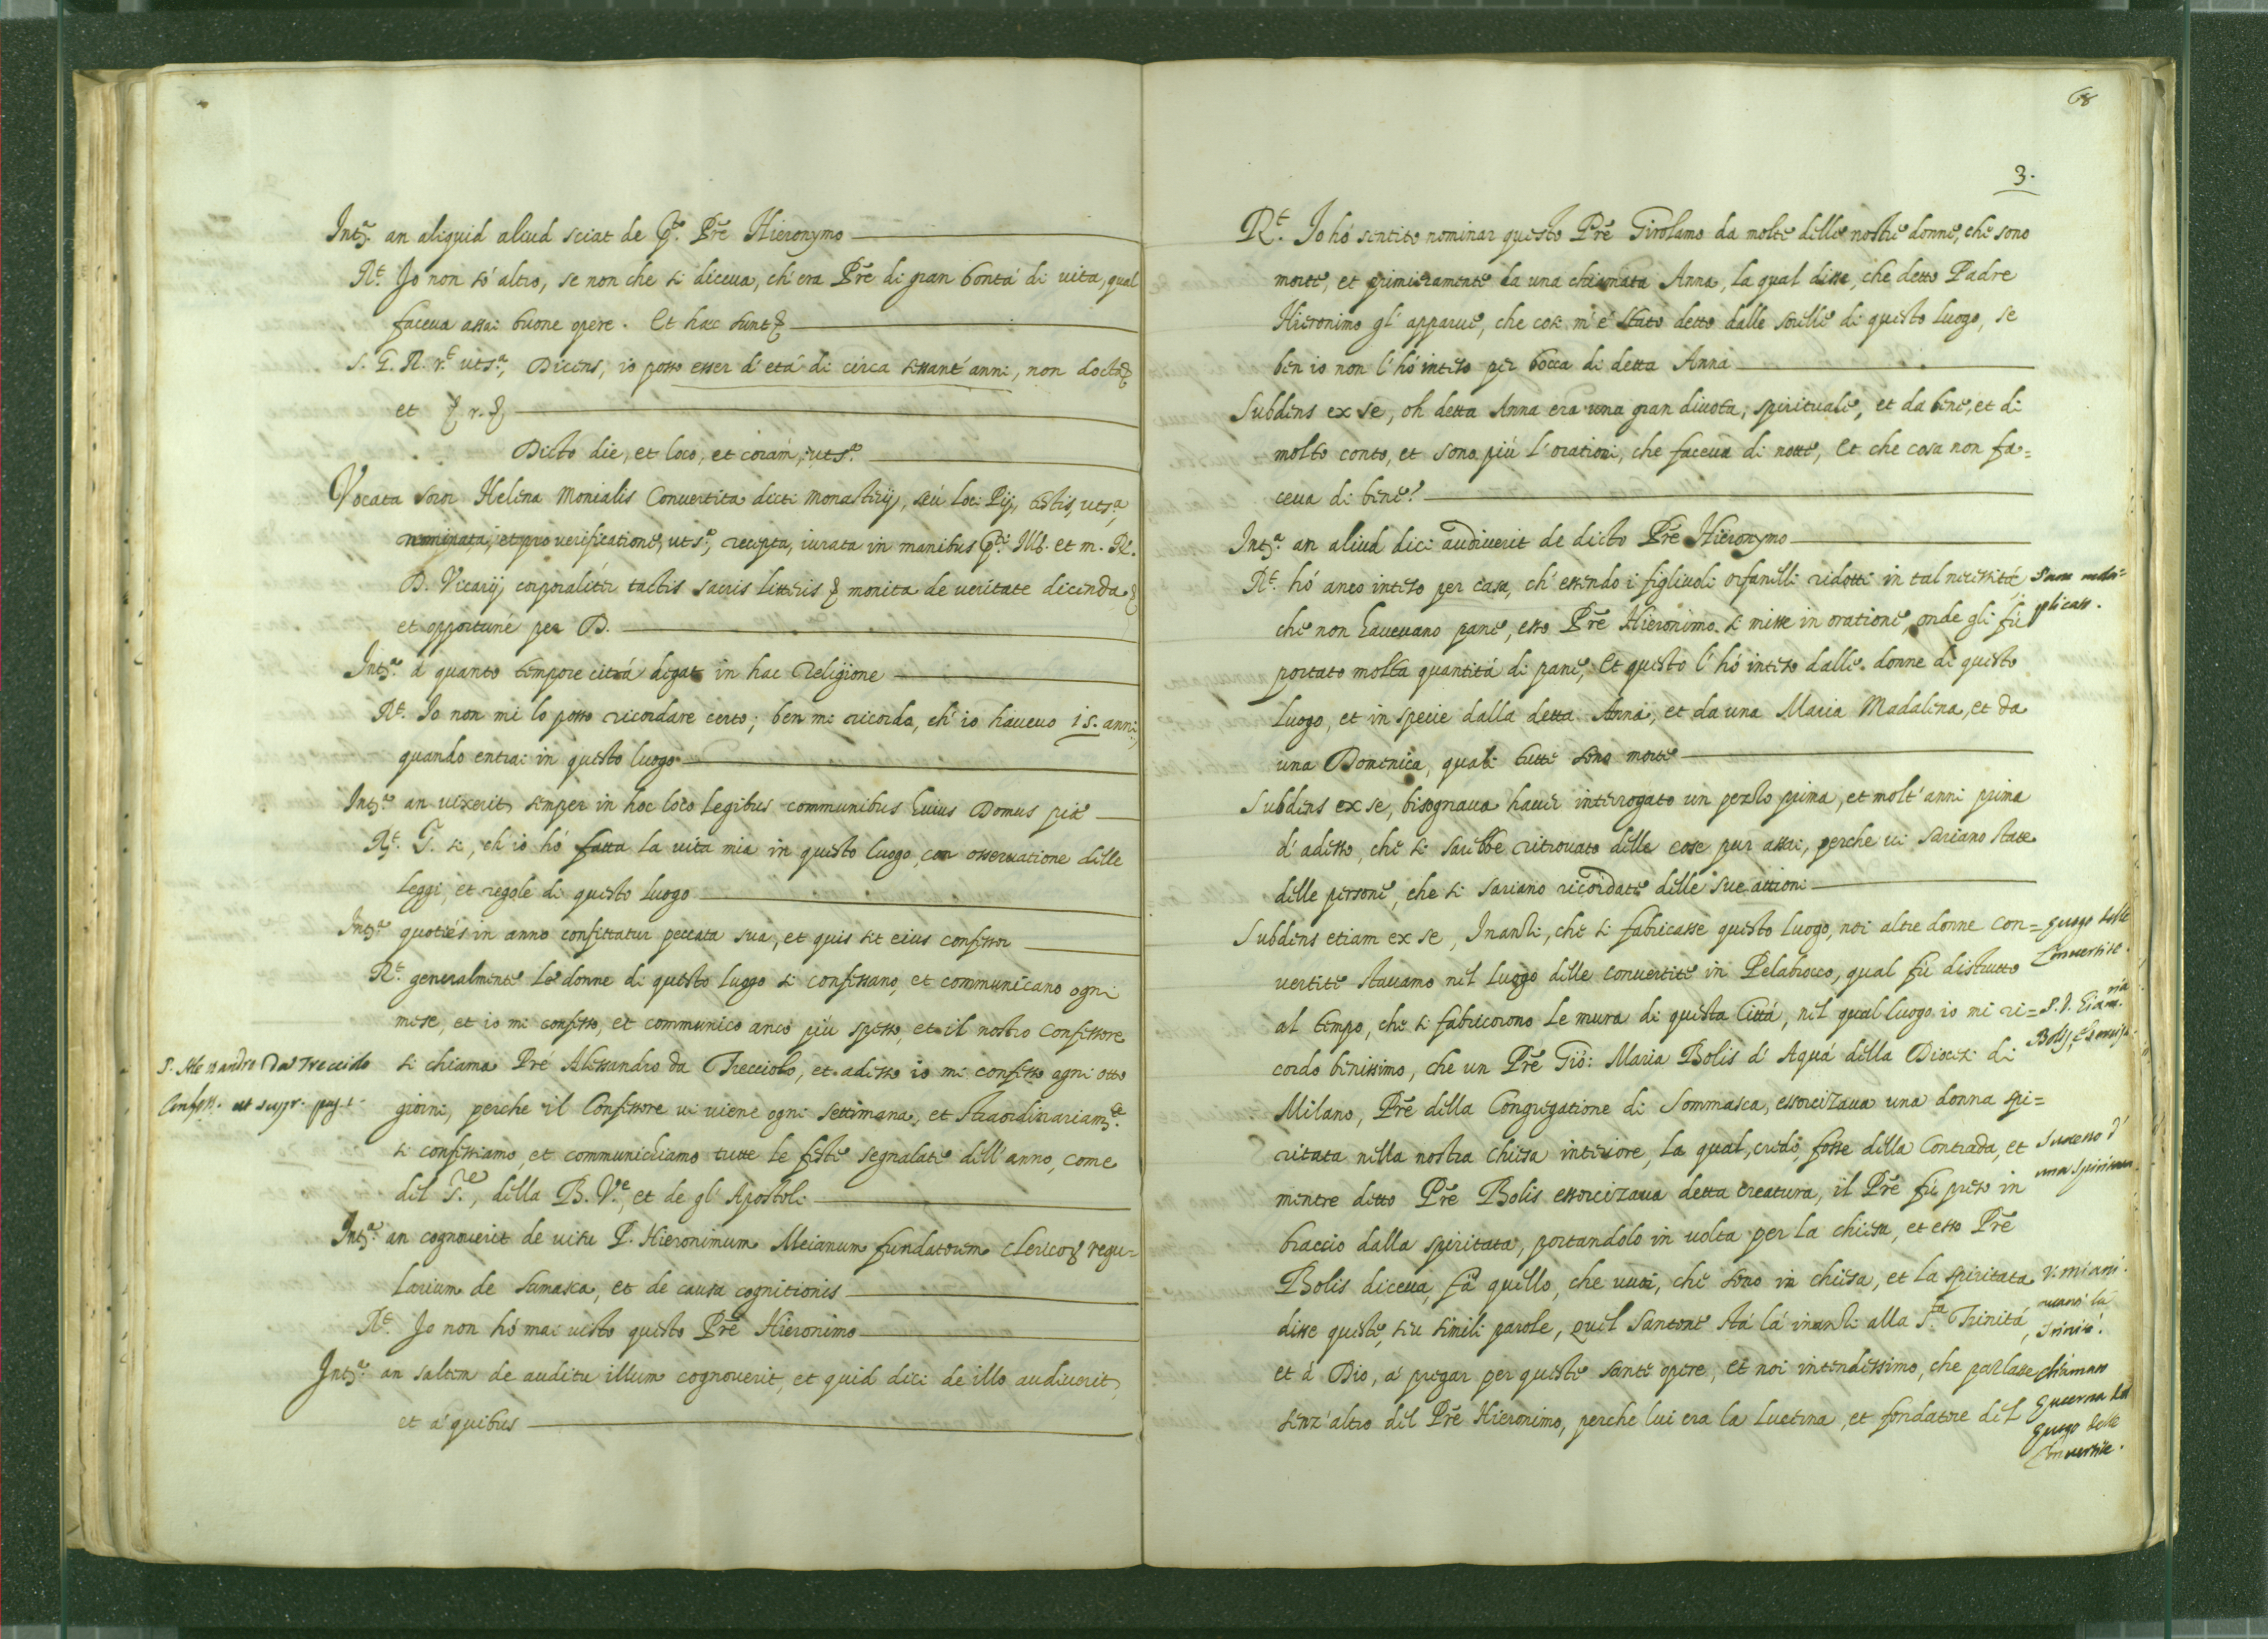 Int.a an aliquid aliud sciat de p.to Prē Hieronymo
R.t Io non sò altro, se non che si diceua, ch'era Prē di gran bontà di uita, qual
faceua assai buone opere. Et hæc sunt &
S. I. R. r.t uts.a, Dicens, io posso esser d'età di circa sessant'anni, non doctor &
et & r. &
Dicto die, et loco, et coràm, uts.a
Vocata soror Helena Monialis Conuertita dicti Monasterij, seù loci Pij, testis, uts.a,
nominata, et pro uerificatione, uts.a, recepta, iurata in manibus p.ti Ill. et m. R.
D. Vicarij, corporalitèr tactis sacris litteris & monita de ueritate dicenda &
et opportunè per D.
Int.a à quanto tempore citrà degat in hac Religione
R.t Io non mi lo posso ricordare certo; ben mi ricordo, ch'io haueuo 15. anni,
quando entrai in questo luogo
Int.a an uixerit semper in hoc loco legibus communibus huius Domus piæ
R.t S. si, ch'io hò fatta la uita mia in questo luogo con osseruatione delle
leggi, et regole di questo luogo
Int.a quotiès in anno confiteatur peccata sua, et quis sit eius confessor
R.t generalmente le donne di questo luogo si confessano, et communicano ogni
mese, et io mi confesso, et communico anco più spesso, et il nostro Confessore
si chiama Prē Alessandro da Trecciolo, et adesso io mi confesso ogni otto
P. Alessandro Da Trecciolo
Confess. ut supr. pag. 1.
giorni, perche il Confessore ui uiene ogni settimana, et straordinariam.te
si confessiamo, et communichiamo tutte le feste segnalate dell'anno, come
del S.re, della B. V.e, et de gl'Apostoli
Int.a an cognouerit de uisu P. Hieronimum Meianum fundatorem Clericor. regu=
larium de Sumasca, et de causa cognitionis
R.t Io non hò mai uisto questo Prē Hieronimo
Int.a an saltem de auditu illum cognouerit, et quid dici de illo audiuerit,
et à quibus
68
3.
R.t Io hò sentito nominar questo Prē Girolamo da molte delle nostre donne, che sono
morte, et primieramente da una chiamata Anna, la qual disse, che detto Padre
Hieronimo gl'apparue, che così m'è stato detto dalle sorelle di questo luogo, se
ben io non l'hò inteso per bocca di detta Anna
Subdens ex se, oh detta Anna era una gran diuota, spirituale, et da bene, et di
molto conto, et sono più l'orationi, che faceua di notte, et che cosa non fa=
ceua di bene?
Int.a an aliud dici audiuerit de dicto Prē Hieronymo
R.t hò anco inteso per casa, ch'essendo i figliuoli orfanelli ridotti in tal necessità,
che non haueuano pane, esso Prē Hieronimo si misse in oratione, onde gli fù
plicato.
portato molta quantità di pane, et questo l'hò inteso dalle donne di questo
luogo, et in specie dalla detta Anna, et da una Maria Madalena, et da
una Domenica, quali tutte sono morte
Subdens ex se, bisognaua hauer interrogato un pezzo prima, et molt'anni prima
d'adesso, che si sarebbe ritrouato delle cose pur assai, perche ui sariano state
delle persone, che si sariano ricordate delle sue attioni
Subdens etiam ex se, Inanzi, che si fabricasse questo luogo, noi altre donne con=
Luogo delle
Conuertite.
uertite stauamo nel luogo delle conuertite in Pelabrocco, qual fù distrutto
al tempo, che si fabricorono le mura di questa Città, nel qual luogo io mi ri=
cordo benissimo, che un Prē Giò: Maria Bolis d'Aquà della Diocesi di
Milano, Prē della Congregatione di Sommasca, essorcizaua una donna spi=
ritata nella nostra chiesa interiore, la qual, credo, fosse della Contrada, et
Successo d'
una spiritata.
mentre detto Prē Bolis essorcizaua detta creatura, il Prē fù preso in
braccio dalla spiritata, portandolo in uolta per la chiesa, et esso Prē
Bolis diceua, fà quello, che uuoi, che sono in chiesa, et la spiritata
disse queste, siu simili parole, quel santone stà là inanzi alla S.ta Trinità,
et à Dio, à pregar per queste sante opere, et noi intendessimo, che parlasse
senz'altro del Prē Hieronimo, perche lui era la lucerna, et fondatore del
chiamato
Lucerna del
Luogo delle
Conuertite.